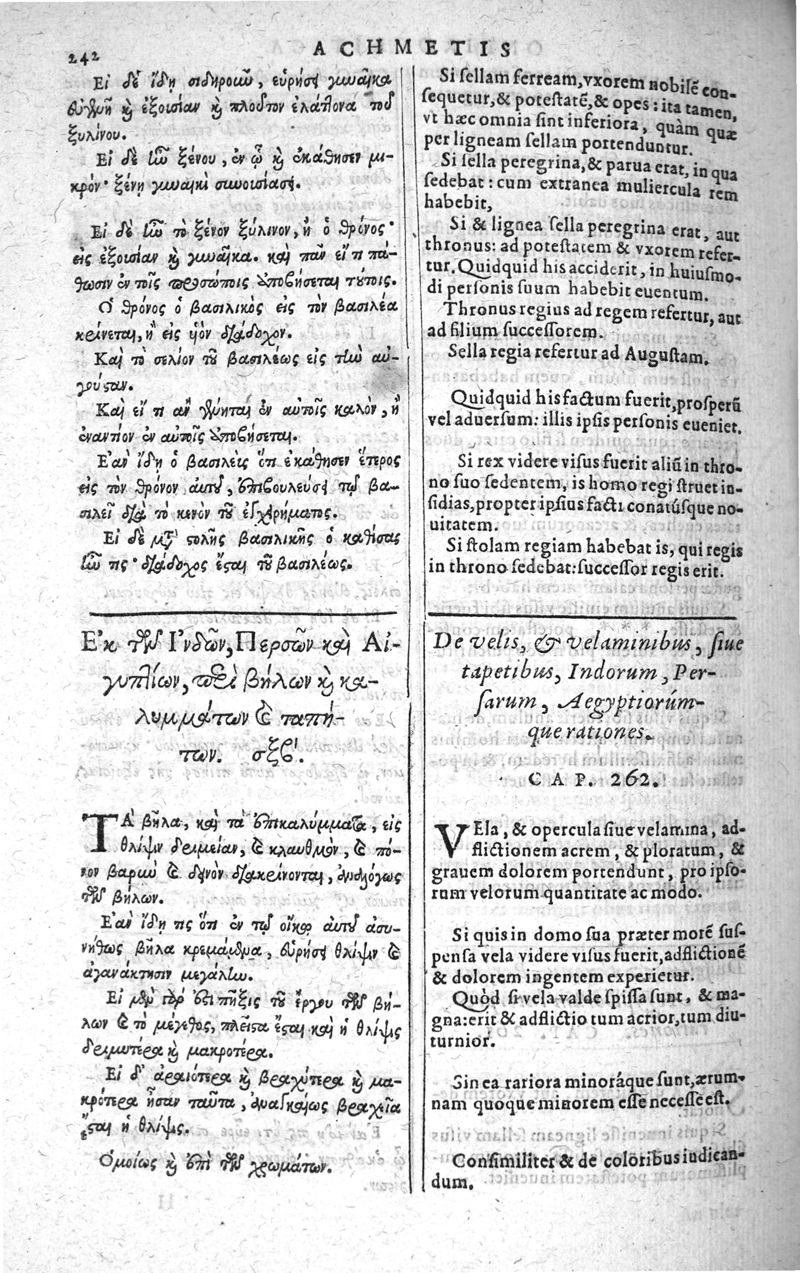 242
ACHMETIS
Εἰ δὲ ἴδῃ σιδηροιῶ, εὑρήσει γυναῖκα
εὐγενῆ καὶ ἐξουσίαν καὶ πλοῦτον ἐλάττονα τοῦ
ξυλίνου.
Εἰ δὲ ἦν ξένου, ἐν ᾧ καὶ ἐκάθησεν μι-
κρόν· ξένῃ γυναικὶ συνουσιάσει.
Εἰ δὲ ἦν τὸ ξένον ξύλινον, ἢ ὁ θρόνος·
εἰς ἐξουσίαν καὶ γυναῖκα. καὶ πᾶν εἴ τι πά-
θωσιν ἐν τοῖς προσώποις ἀποβήσεται τούτοις.
Ὁ θρόνος ὁ βασιλικὸς εἰς τὸν βασιλέα
κρίνεται, ἢ εἰς υἱὸν διάδοχον.
Καὶ τὸ σελίον τοῦ βασιλέως εἰς τὴν αὐ-
γούσταν.
Καὶ εἴ τι ἂν γένηται ἐν αὐτοῖς καλὸν, ἢ
ἐναντίον ἐν αὐτοῖς ἀποβήσεται.
Ἐὰν ἴδῃ ὁ βασιλεὺς ὅτι ἐκάθησεν ἕτερος
εἰς τὸν θρόνον αὐτοῦ, ἐπιβουλεύσει τῷ βα-
σιλεῖ διὰ τὸ κενὸν τοῦ ἐγχειρήματος.
Εἰ δὲ μετὰ στολῆς βασιλικῆς ὁ καθίσας
ἦν τις· διάδοχος ἔσται τοῦ βασιλέως.
Ἐκ τῶν Ἰνδῶν, Περσῶν καὶ Αἰ-
γυπτίων, περὶ βήλων καὶ κα-
λυμμάτων καὶ ταπή-
των. σξβʹ.
ΤΑ βῆλα, καὶ τὰ ἐπικαλύμματα, εἰς
θλίψιν δριμεῖαν, καὶ κλαυθμὸν, καὶ πό-
νον βαρὺν καὶ δεινὸν διακρίνονται, ἀναλόγως
τῶν βήλων.
Ἐὰν ἴδῃ τις ὅτι ἐν τῷ οἴκῳ αὐτοῦ ἀσυ-
νήθως βῆλα κρεμάμενα, εὑρήσει θλίψιν καὶ
ἀγανάκτησιν μεγάλην.
Εἰ μὲν γὰρ ἐπὶ πῆξις τοῦ ἔργου τῶν βή-
λων καὶ τὸ μέγεθος, πλεῖστα ἔσται καὶ ἡ θλίψις
δριμυτέρα καὶ μακροτέρα.
Εἰ δ' ἀραιότερα καὶ βραχύτερα καὶ μα-
κρότερα ἦσαν ταῦτα, ἀναγκαίως βραχεῖα
ἔσται ἡ θλίψις.
Ὁμοίως καὶ ἐπὶ τῶν χρωμάτων.
Si sellam ferream, vxorem nobilē con-
sequetur, & potestatē, & opes: ita tamen,
vt hæc omnia sint inferiora, quàm quæ
per ligneam sellam portenduntur.
Si sella peregrina, & parua erat, in qua
sedebat: cum extranea muliercula rem
habebit,
Si & lignea sella peregrina erat, aut
thronus: ad potestatem & vxorem refer-
tur. Quidquid his acciderit, in huiusmo-
di personis suum habebit euentum.
Thronus regius ad regem refertur, aut
ad filium successorem.
Sella regia refertur ad Augustam.
Quidquid his factum fuerit, prosperū
vel aduersum: illis ipsis personis eueniet.
Si rex videre visus fuerit aliū in thro-
no suo sedentem, is homo regi struet in-
sidias, propter ipsius facti conatúsque no-
uitatem.
Si stolam regiam habebat is, qui regis
in throno sedebat: successor regis erit.
De velis, & velaminibus, siue
tapetibus, Indorum, Per-
sarum, Aegyptiorúm-
que rationes.
CAP. 262.
VEla, & opercula siue velamina, ad-
flictionem acrem, & ploratum, &
grauem dolorem portendunt, pro ipso-
rum velorum quantitate ac modo.
Si quis in domo sua præter morē sus-
pensa vela videre visus fuerit, adflictionē
& dolorem ingentem experietur.
Quòd si vela valde spissa sunt, & ma-
gna: erit & adflictio tum acrior, tum diu-
turnior.
Sin ea rariora minoráque sunt, ærum-
nam quoque minorem esse necesse est.
Consimiliter & de coloribus iudican-
dum.